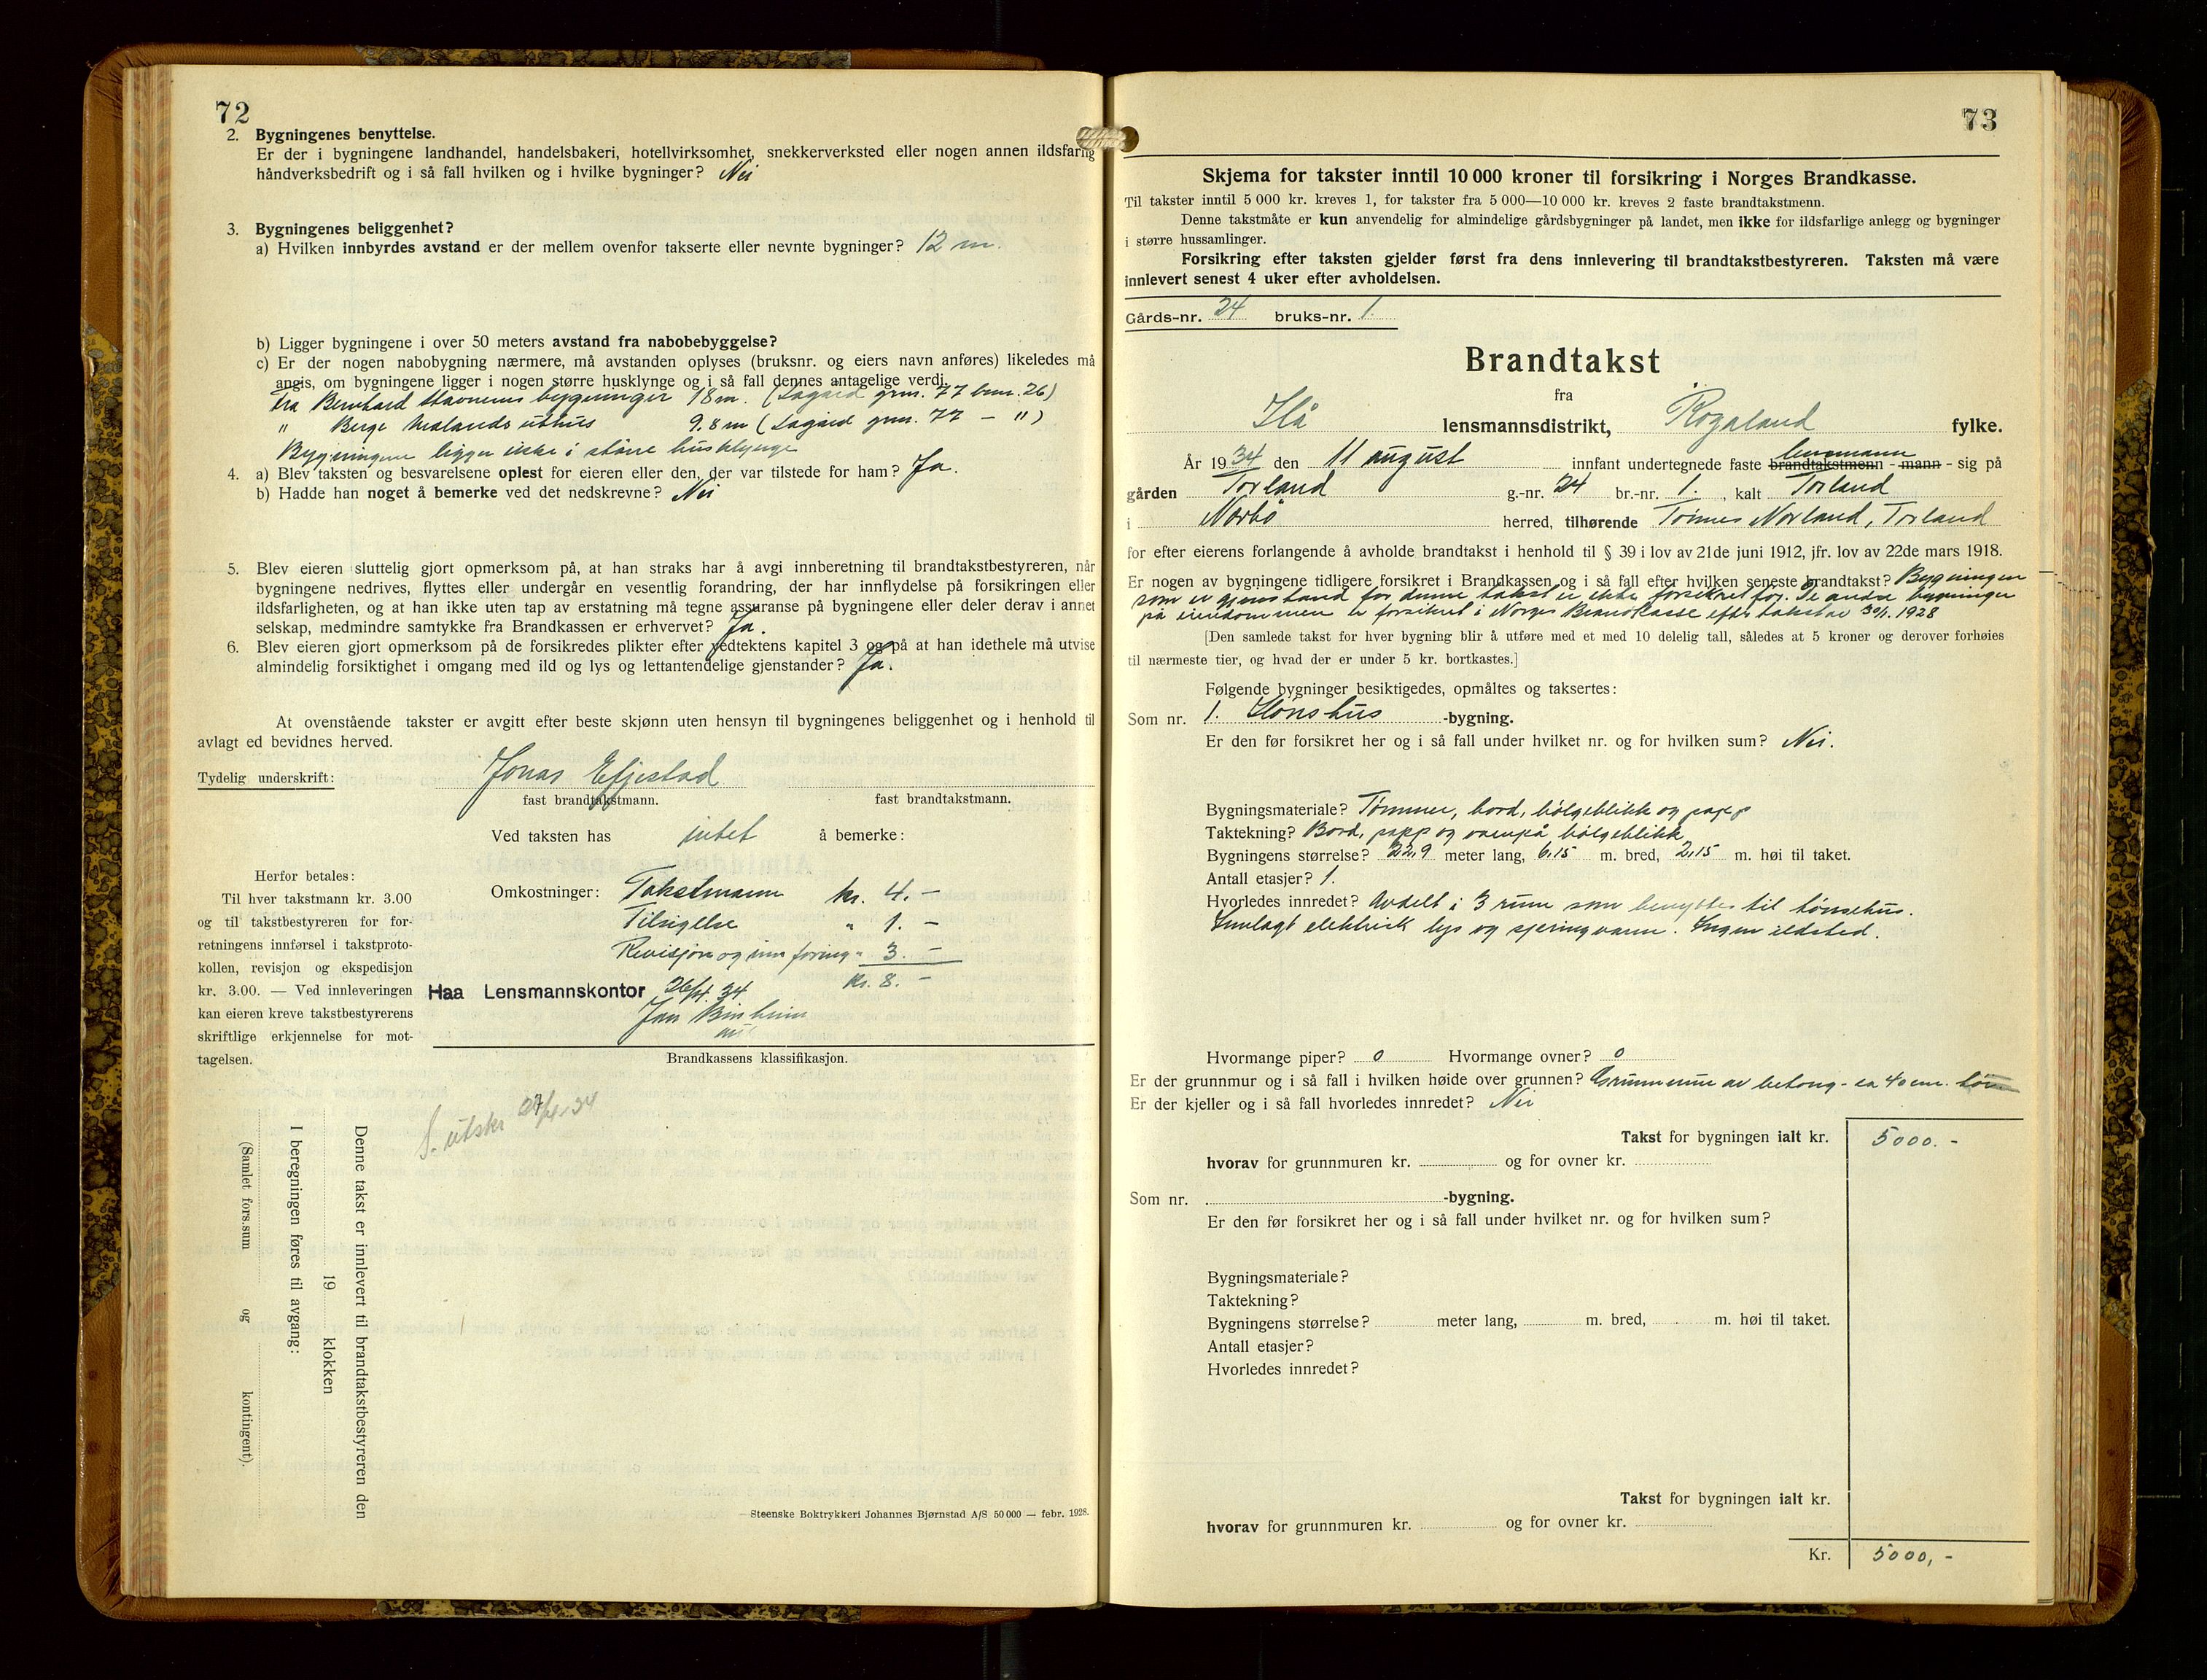 72
2. Bygningenes benyttelse.
Er der i bygningene landhandel, handelsbakeri, hotellvirksomhet, snekkerverksted eller nogen annen ildsfarlig
håndverksbedrift og i så fall hvilken og i hvilke bygninger? Nei
3. Bygningenes beliggenhet?
a) Hvilken innbyrdes avstand er der mellem ovenfor takserte eller nevnte bygninger? 12 m.
b) Ligger bygningene i over 50 meters avstand fra nabobebyggelse?
c) Er der nogen nabobygning nærmere, må avstanden oplyses (bruksnr. og eiers navn anføres) likeledes må
angis, om bygningene ligger i nogen større husklynge og i så fall dennes antagelige verdi.
fra Bernhard Stavnems bygninger 18 m. (Lagård grn. 77 brn. 26)
" Berge uthus 9.8 m (Lagård grn. 77 - ")
Bygningene ligger ikke i større husklynge
4. a) Blev taksten og besvarelsene oplest for eieren eller den, der var tilstede for ham? Ja.
b) Hadde han noget å bemerke ved det nedskrevne? Nei
5. Blev eieren sluttelig gjort opmerksom på, at han straks har å avgi innberetning til brandtakstbestyreren, når
bygningene nedrives, flyttes eller undergår en vesentlig forandring, der har innflydelse på forsikringen eller
ildsfarligheten, og at han ikke uten tap av erstatning må tegne assuranse på bygningene eller deler derav i annet
selskap, medmindre samtykke fra Brandkassen er erhvervet? Ja.
6. Blev eieren gjort opmerksom på de forsikredes plikter efter vedtektens kapitel 3 og på at han idethele må utvise
almindelig forsiktighet i omgang med ild og lys og lettantendelige gjenstander? Ja.
At ovenstående takster er avgitt efter beste skjønn uten hensyn til bygningenes beliggenhet og i henhold til
avlagt ed bevidnes herved.
Tydelig underskrift: Jonas Efjestad
fast brandtakstmann. fast brandtakstmann.
Ved taksten has intet å bemerke:
Herfor betales:
Til hver takstmann kr. 3.00
og til takstbestyreren for for-
retningens innførsel i takstproto-
kollen, revisjon og ekspedisjon
kr. 3.00. — Ved innleveringen
kan eieren kreve takstbestyrerens
skriftlige erkjennelse for mot-
tagelsen.
Omkostninger: Takstmann kr. 4. -
Tilsigelse " 1. -
Revisjon og innføring " 3. -
kr. 8. -
Haa Lensmannskontor 34
Jan
Brandkassens klassifikasjon.
S. utskr 34
Denne takst er innlevert til brandtakstbestyreren den
19 klokken
I beregningen føres til avgang:
(Samlet fors.sum og kontingent).
Steenske Boktrykkeri Johannes Bjørnstad A/S 50 000 — febr. 1928.
73
Skjema for takster inntil 10 000 kroner til forsikring i Norges Brandkasse.
Til takster inntil 5 000 kr. kreves 1, for takster fra 5 000—10 000 kr. kreves 2 faste brandtakstmenn.
Denne takstmåte er kun anvendelig for almindelige gårdsbygninger på landet, men ikke for ildsfarlige anlegg og bygninger
i større hussamlinger.
Forsikring efter taksten gjelder først fra dens innlevering til brandtakstbestyreren. Taksten må være
innlevert senest 4 uker efter avholdelsen.
Gårds-nr. 24 bruks-nr. 1.
Brandtakst
fra
Hå lensmannsdistrikt, Rogaland fylke.
lensmann
År 1934 den 11 august innfant undertegnede faste brandtakstmenn - mann - sig på
gården Torland g.-nr. 24 br.-nr. 1., kalt Torland
i Nærbø herred, tilhørende Tønnes Norland, Torland
for efter eierens forlangende å avholde brandtakst i henhold til § 39 i lov av 21de juni 1912, jfr. lov av 22de mars 1918.
Er nogen av bygningene tidligere forsikret i Brandkassen og i så fall efter hvilken seneste brandtakst? Bygningen
som er gjenstand for denne takst er ikke forsikret før. De andre bygninger
på eiendommen er forsikret i Norges Brandkasse efter takst av 30/1. 1928
[Den samlede takst for hver bygning blir å utføre med et med 10 delelig tall, således at 5 kroner og derover forhøies
til nærmeste tier, og hvad der er under 5 kr. bortkastes.]
Følgende bygninger besiktigedes, opmåltes og taksertes:
Som nr. 1. Hønshus -bygning.
Er den før forsikret her og i så fall under hvilket nr. og for hvilken sum? Nei.
Bygningsmateriale? Tømmer, bord, bølgeblikk og papp
Taktekning? Bord, papp og ovenpå bølgeblikk
Bygningens størrelse? 22,9 meter lang, 6,15 m. bred, 2,15 m. høi til taket.
Antall etasjer? 1.
Hvorledes innredet? Avdelt i 3 rum som benyttes til hønsehus.
Innlagt elektrisk lys og . Ingen ildsted.
Hvormange piper? 0 Hvormange ovner? 0
Er der grunnmur og i så fall i hvilken høide over grunnen? Grunnmur av betong - ca 40 cm.
Er der kjeller og i så fall hvorledes innredet? Nei
Takst for bygningen ialt kr. 5000. -
hvorav for grunnmuren kr. og for ovner kr.
Som nr. -bygning.
Er den før forsikret her og i så fall under hvilket nr. og for hvilken sum?
Bygningsmateriale?
Taktekning?
Bygningens størrelse? meter lang, m. bred, m. høi til taket.
Antall etasjer?
Hvorledes innredet?
Takst for bygningen ialt kr.
hvorav for grunnmuren kr. og for ovner kr.
Kr. 5000, -